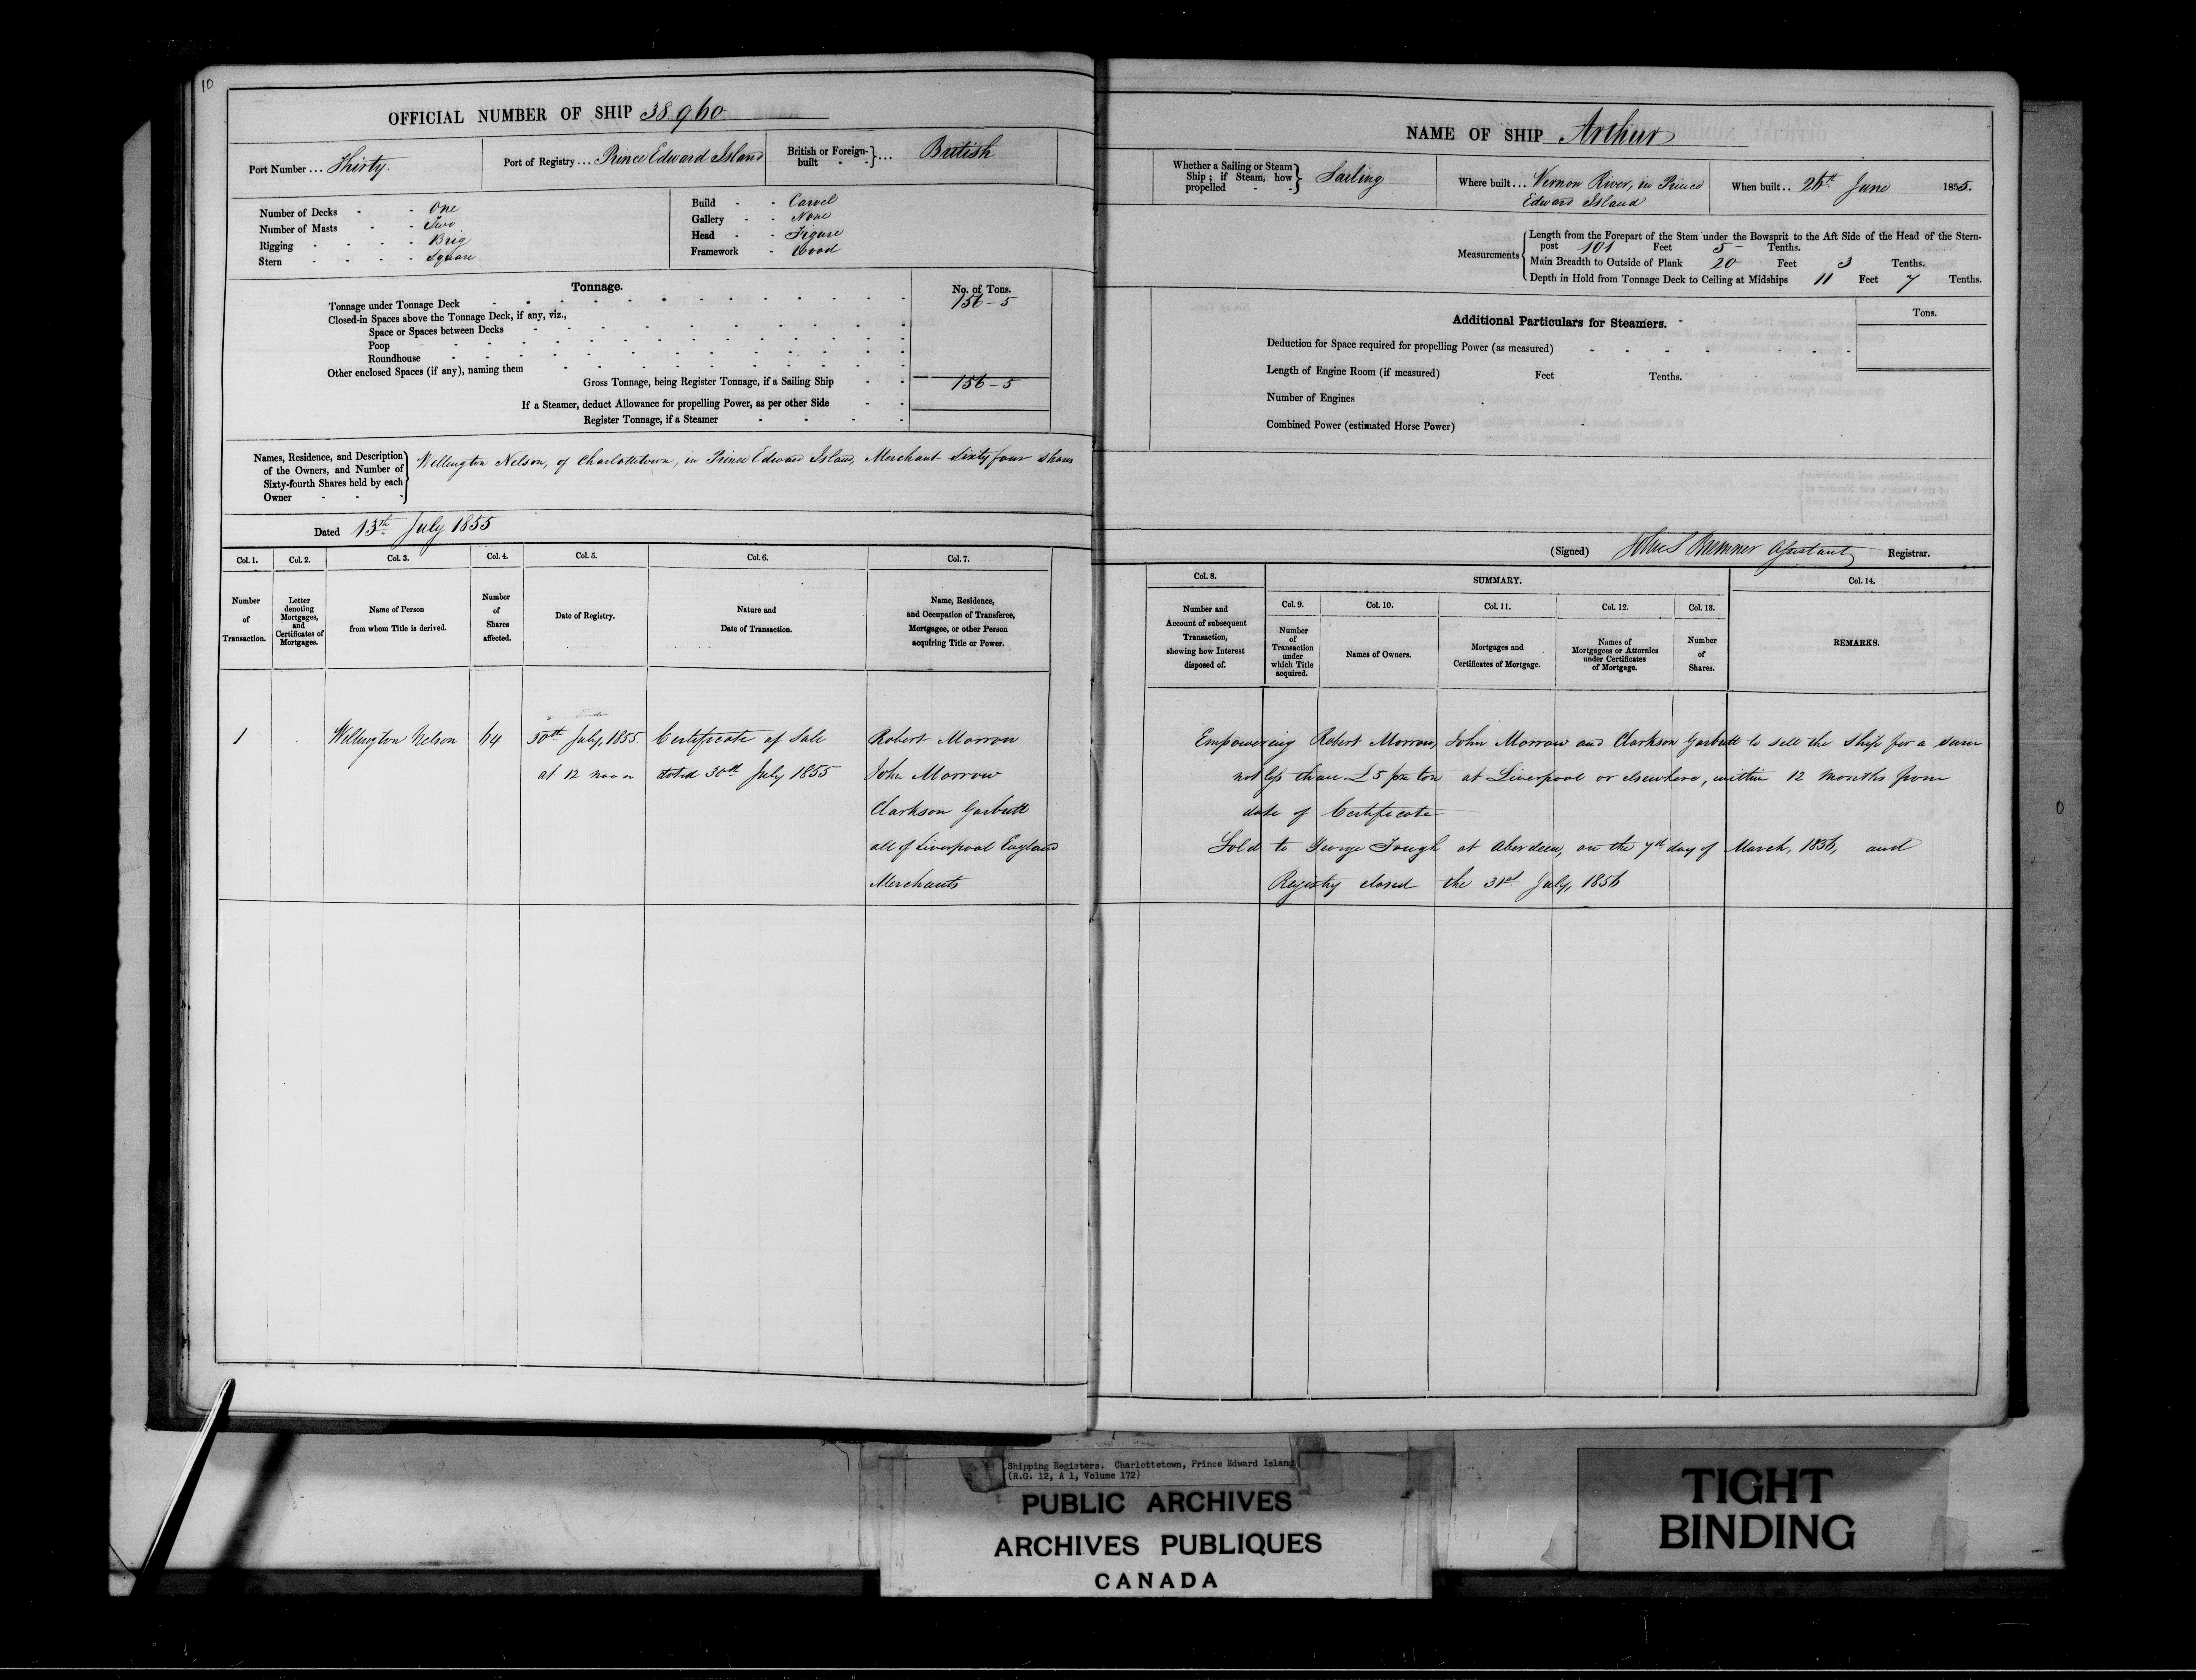 10
OFFICIAL NUMBER OF SHIP 38,960
Port Number ... Thirty.
Port of Registry ... Prince Edward Island
British or Foreign-built } ... British
Number of Decks - - One
Number of Masts - - Two
Rigging - - - - Brig
Stern - - - - Square
Build - - Carvel
Gallery - - None
Head - - Figure
Framework - Wood
Tonnage.
No. of Tons.
Tonnage under Tonnage Deck 156-5
Closed-in Spaces above the Tonnage Deck, if any, viz.,
Space or Spaces between Decks
Poop
Roundhouse
Other enclosed Spaces (if any), naming them
Gross Tonnage, being Register Tonnage, if a Sailing Ship 156-5
If a Steamer, deduct Allowance for propelling Power, as per other Side
Register Tonnage, if a Steamer
Names, Residence, and Description of the Owners, and Number of Sixty-fourth Shares held by each Owner
Wellington Nelson, of Charlottetown, in Prince Edward Island, Merchant Sixty four shares
Dated 13th July 1855
Col. 1. Col. 2. Col. 3. Col. 4. Col. 5. Col. 6. Col. 7.
Number of Transaction.
Letter denoting Mortgages, and Certificates of Mortgages.
Name of Person from whom Title is derived.
Number of Shares affected.
Date of Registry.
Nature and Date of Transaction.
Name, Residence, and Occupation of Transferee, Mortgagee, or other Person acquiring Title or Power.
1 Wellington Nelson 64 30th July, 1855 Certificate of Sale Robert Morrow
at 12 noon dated 30th July 1855 John Morrow
Clarkson Garbutt
all of Liverpool England
Merchants
NAME OF SHIP Arthur
Whether a Sailing or Steam Ship; if Steam, how propelled } Sailing
Where built ... Vernon River, in Prince
Edward Island
When built .. 26th June 1855.
Measurements
Length from the Forepart of the Stem under the Bowsprit to the Aft Side of the Head of the Stern-
post 101 Feet 5 Tenths.
Main Breadth to Outside of Plank 20 Feet 3 Tenths.
Depth in Hold from Tonnage Deck to Ceiling at Midships 11 Feet 7 Tenths.
Additional Particulars for Steamers.
Tons.
Deduction for Space required for propelling Power (as measured)
Length of Engine Room (if measured) Feet Tenths.
Number of Engines
Combined Power (estimated Horse Power)
(Signed) John S Bremner Assistant Registrar.
Col. 8. SUMMARY. Col. 14.
Col. 9. Col. 10. Col. 11. Col. 12. Col. 13.
Number and Account of subsequent Transaction, showing how Interest disposed of.
Number of Transaction under which Title acquired.
Names of Owners.
Mortgages and Certificates of Mortgage.
Names of Mortgagees or Attornies under Certificates of Mortgage.
Number of Shares.
REMARKS.
Empowering Robert Morrow, John Morrow and Clarkson Garbutt to sell the Ship for a sum
not less than £5 per ton at Liverpool or elsewhere, within 12 months from
date of Certificate
Sold to George Tough at Aberdeen, on the 7th day of March, 1856, and
Registry closed the 31st July, 1856
Shipping Registers. Charlottetown, Prince Edward Island
(R.G. 12, A 1, Volume 172)
PUBLIC ARCHIVES
ARCHIVES PUBLIQUES
CANADA
TIGHT
BINDING